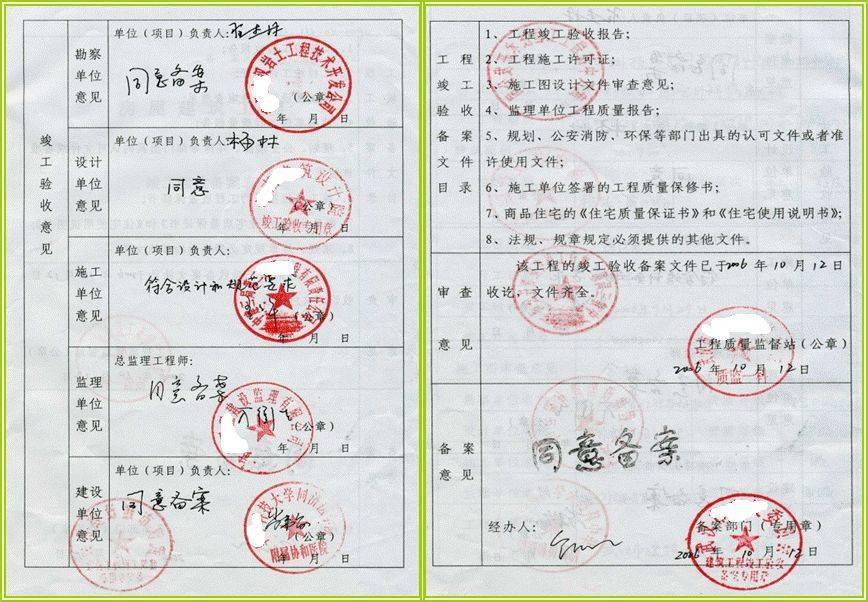 竣工验收意见
勘察单位意见
单位（项目）负责人:
同意备案
岩土工程技术开发公司
（公章）
年 月 日
设计单位意见
单位（项目）负责人: 杨林
同意
筑设计院
竣工验收专用章
（公章）
年 月 日
施工单位意见
单位（项目）负责人:
符合设计和规范要求
有限责任公司
（公章）
年 月 日
监理单位意见
总监理工程师:
同意备案
建设监理有限公司
（公章）
年 月 日
建设单位意见
单位（项目）负责人:
同意备案
大学同济
附属协和医院
（公章）
年 月 日
工程竣工验收备案文件目录
1、工程竣工验收报告;
2、工程施工许可证;
3、施工图设计文件审查意见;
4、监理单位工程质量报告;
5、规划、公安消防、环保等部门出具的认可文件或者准
许使用文件;
6、施工单位签署的工程质量保修书;
7、商品住宅的《住宅质量保证书》和《住宅使用说明书》;
8、法规、规章规定必须提供的其他文件。
审查意见
该工程的竣工验收备案文件已于2006年10月12日
收讫，文件齐全。
工程质量监督站（公章）
质监一科
2006年10月12日
备案意见
同意备案
经办人:
备案部门（专用章）
2006年10月12日
建筑工程竣工验收
备案专用章